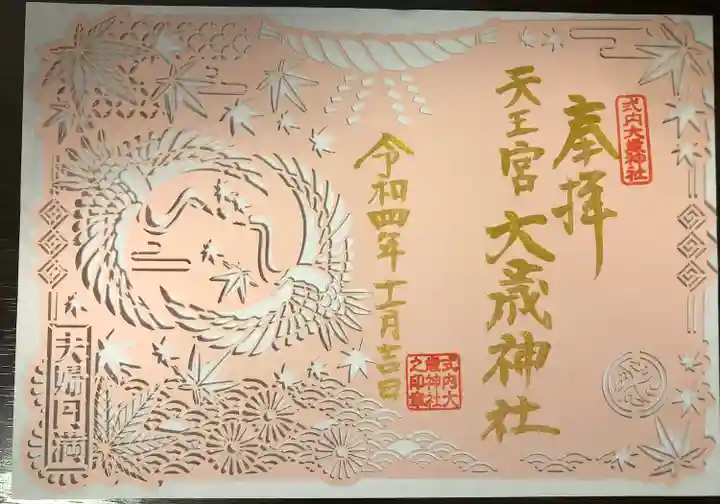 式内大歳神社
奉拝
天王宮 大歳神社
令和四年十一月吉日
式内大
歳神社
之印章
夫婦円満